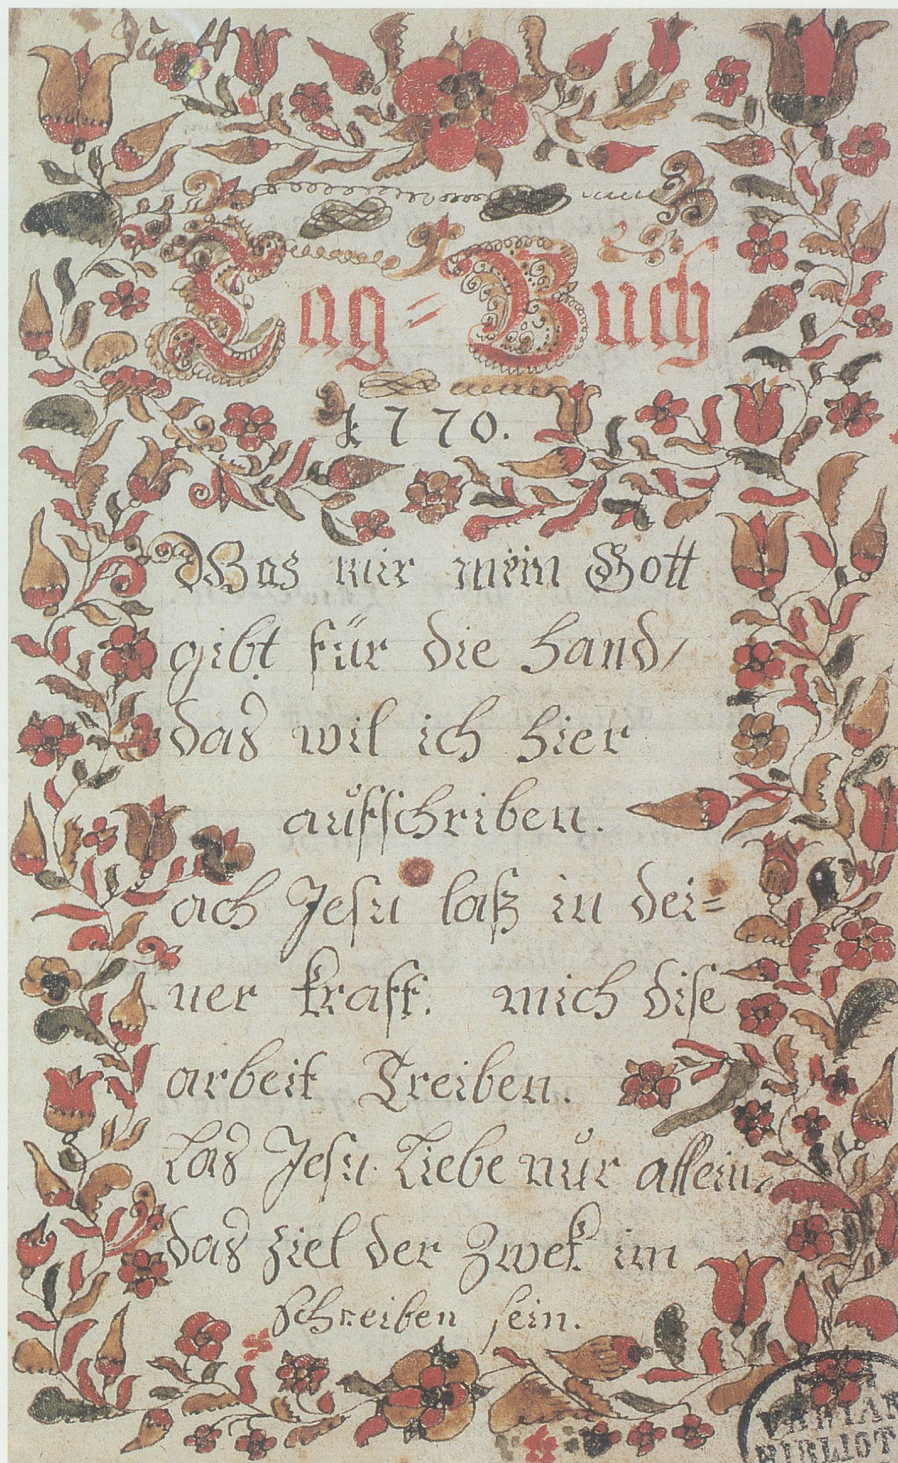 Tag=Buch
1770.
Was mir mein Gott
gibt für die hand/
das wil ich hier
aůfschriben.
ach Jesu laß in dei=
ner kraft. mich dise
arbeit Treiben.
Las Jesu Liebe nůr allein,
das ziel der Zwek im
schreiben sein.